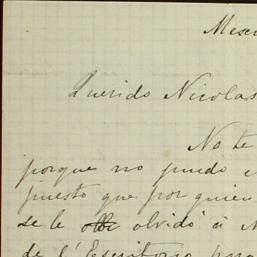 Querido Nicolas
No te
porque no puedo
puesto que por quien
se le olvidó á
de l'Escritorio para